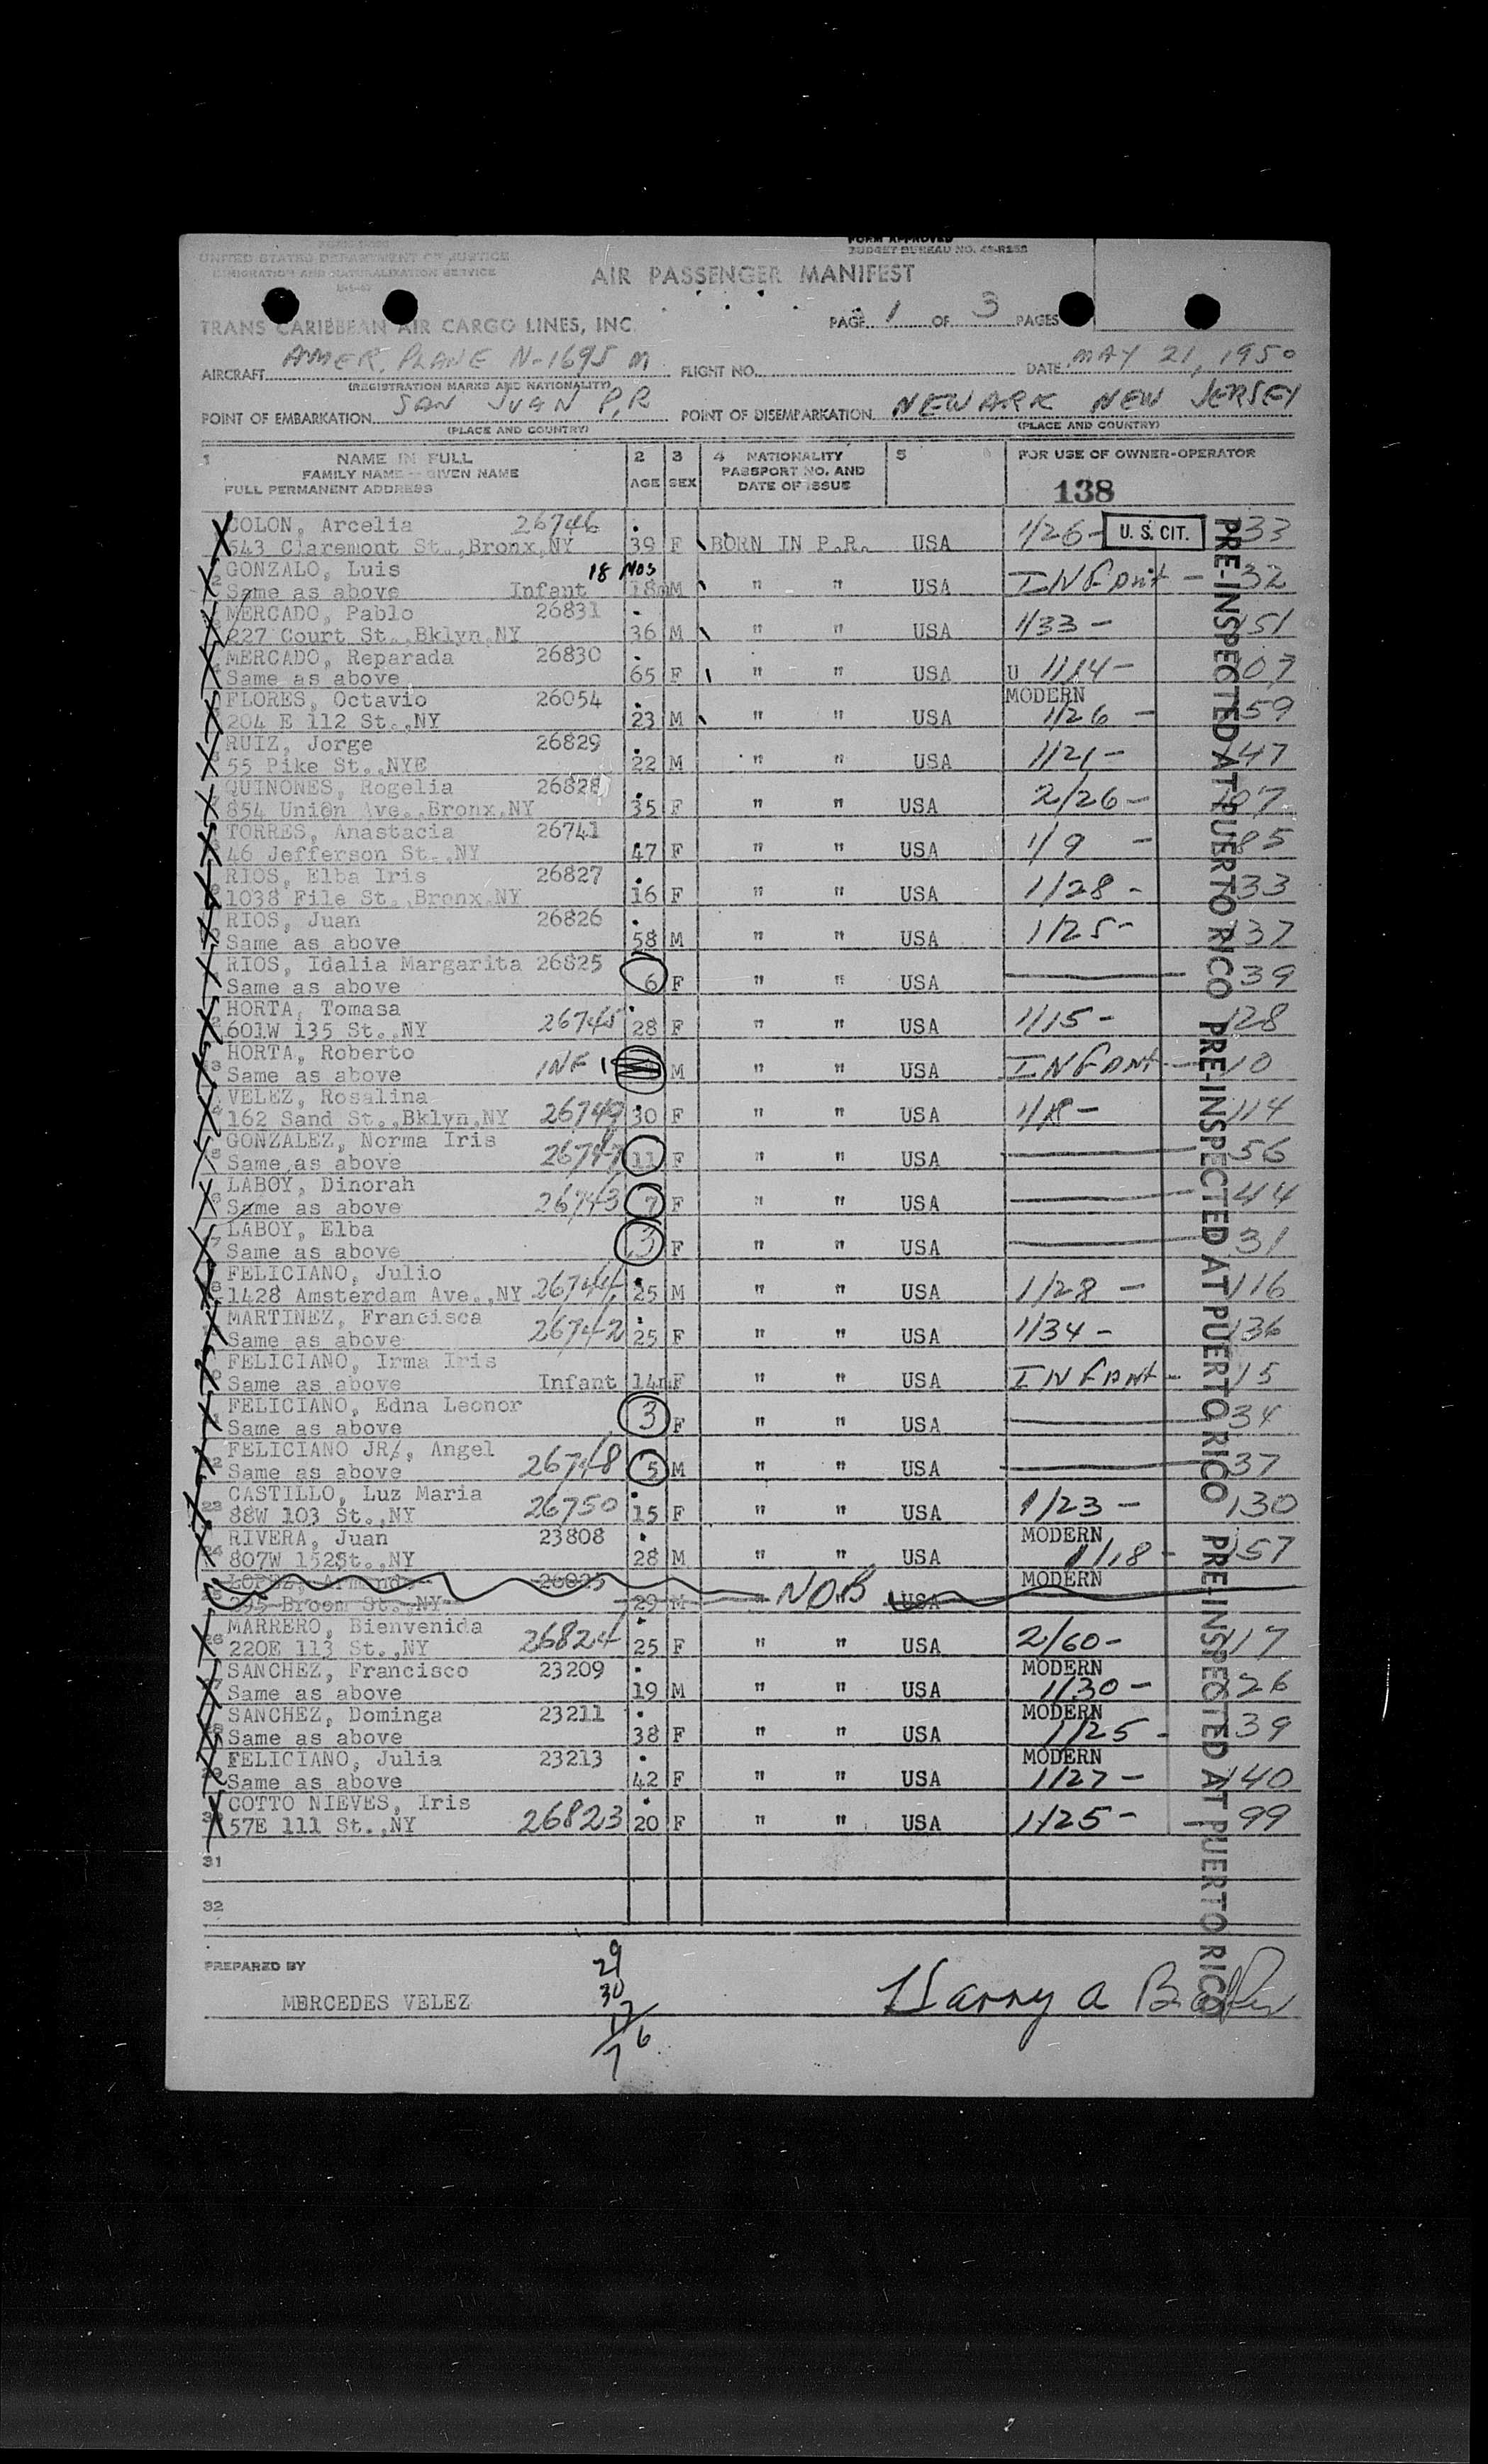 UNITED STATES DEPARTMENT OF JUSTICE
IMMIGRATION AND NATURALIZATION SERVICE
FORM APPROVED
BUDGET BUREAU NO. 43-R353
AIR PASSENGER MANIFEST
TRANS CARIBBEAN AIR CARGO LINES, INC.
PAGE 1 OF 3 PAGES
AIRCRAFT AMER. PLANE N-1695 M FLIGHT NO. DATE MAY 21, 1950
(REGISTRATION MARKS AND NATIONALITY)
POINT OF EMBARKATION SAN JUAN P.R POINT OF DISEMBARKATION NEWARK NEW JERSEY
(PLACE AND COUNTRY) (PLACE AND COUNTRY)
1 NAME IN FULL 2 3 4 NATIONALITY 5 6 FOR USE OF OWNER-OPERATOR
FAMILY NAME -- GIVEN NAME PASSPORT NO. AND
FULL PERMANENT ADDRESS AGE SEX DATE OF ISSUE 138
COLON, Arcelia 26746
543 Claremont St.,Bronx,NY 39 F BORN IN P.R. USA 1/26- U. S. CIT. 133
GONZALO, Luis 18 MOS
2 Same as above Infant 18mM " " USA INFANT - 32
MERCADO, Pablo 26831
227 Court St.,Bklyn,NY 36 M " " USA 1/33 - 151
MERCADO, Reparada 26830
Same as above 65 F " " USA U 1/14- 107
FLORES, Octavio 26054 MODERN
204 E 112 St.,NY 23 M " " USA 1/26 - 159
RUIZ, Jorge 26829
55 Pike St.,NYE 22 M " " USA 1/21- 147
QUINONES, Rogelia 26828
854 Union Ave.,Bronx,NY 35 F " " USA 2/26- 107
TORRES, Anastacia 26741
46 Jefferson St.,NY 47 F " " USA 1/9 - 85
RIOS, Elba Iris 26827
1038 File St.,Bronx,NY 16 F " " USA 1/28- 133
RIOS, Juan 26826
Same as above 58 M " " USA 1/25- 137
RIOS, Idalia Margarita 26825
Same as above 6 F " " USA 39
HORTA, Tomasa
12 601W 135 St.,NY 26745 28 F " " USA 1/15- 128
HORTA, Roberto
13 Same as above INF 1 M " " USA INFANT- 10
VELEZ, Rosalina
162 Sand St.,Bklyn,NY 26749 30 F " " USA 1/18- 114
GONZALEZ, Norma Iris
Same as above 26747 11 F " " USA 56
LABOY, Dinorah
Same as above 26743 7 F " " USA 44
LABOY, Elba
Same as above 3 F " " USA 31
FELICIANO, Julio
1428 Amsterdam Ave.,NY 26744 25 M " " USA 1/28 - 116
MARTINEZ, Francisca
Same as above 26742 25 F " " USA 1/34 - 136
FELICIANO, Irma Iris
Same as above Infant 14mF " " USA INFANT- 15
FELICIANO, Edna Leonor
Same as above 3 F " " USA 34
FELICIANO JR/, Angel
22 Same as above 26748 5 M " " USA 37
23 CASTILLO, Luz Maria
88W 103 St.,NY 26750 15 F " " USA 1/23 - 130
RIVERA, Juan 23808 MODERN
24 807W 152St.,NY 28 M " " USA 1/18- 157
LOPEZ, Armando MODERN
295 Broom St.,NY 29 M " NOB USA
MARRERO, Bienvenida
26 220E 113 St.,NY 26824 25 F " " USA 2/60- 117
SANCHEZ, Francisco 23209 MODERN
27 Same as above 19 M " " USA 1/30- 126
SANCHEZ, Dominga 23211 MODERN
28 Same as above 38 F " " USA 1/25- 139
FELICIANO, Julia 23213 MODERN
29 Same as above 42 F " " USA 1/27- 140
COTTO NIEVES, Iris
30 57E 111 St.,NY 26823 20 F " " USA 1/25- 99
PRE-INSPECTED AT PUERTO RICO PRE-INSPECTED AT PUERTO RICO PRE-INSPECTED AT PUERTO RICO
31
32
PREPARED BY
MERCEDES VELEZ
29
30
17
7/6
Harry a